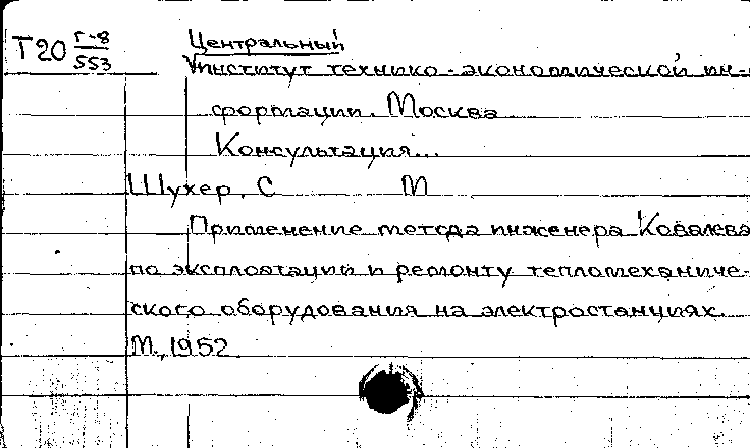 Т20 Г-8
553
Центральный
институт технико-экономической ин-
формации. Москва
Консультация...
Шухер, С М
Применение метода инженера Ковалева
по эксплоатации и ремонту тепломеханиче-
ского оборудования на электростанциях.
М., 1952.